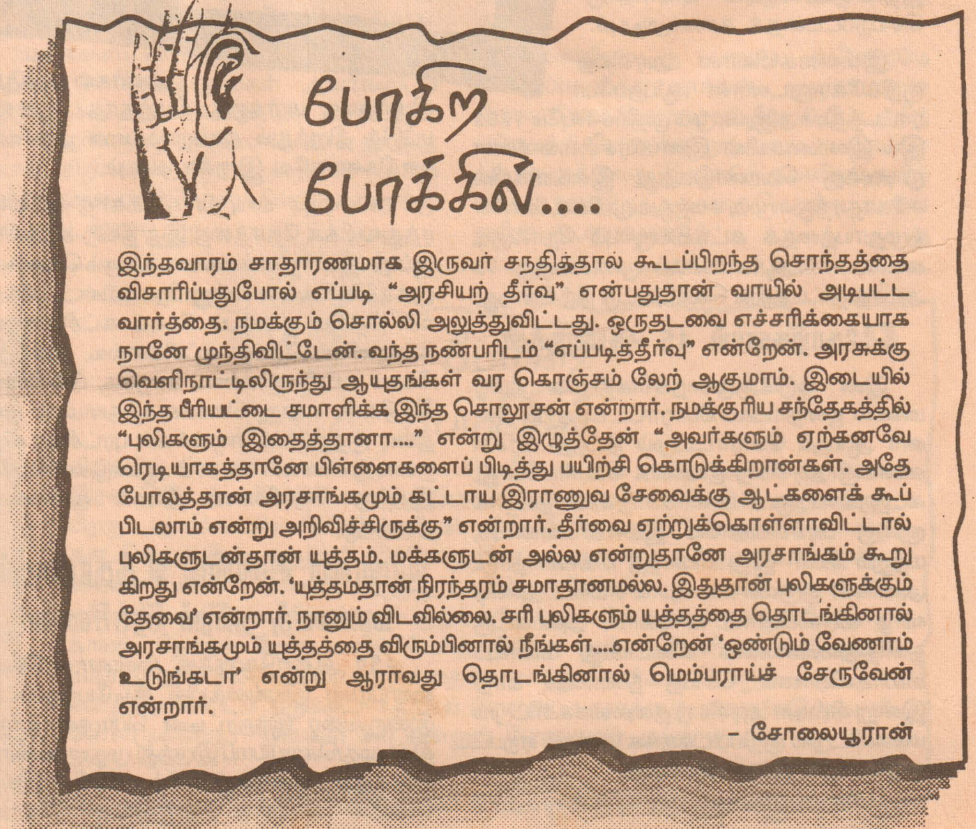 போகிற
போக்கில்....
இந்தவாரம் சாதாரணமாக இருவர் சநதித்தால் கூடப்பிறந்த சொந்தத்தை
விசாரிப்பதுபோல் எப்படி “அரசியற் தீர்வு” என்பதுதான் வாயில் அடிபட்ட
வார்த்தை. நமக்கும் சொல்லி அலுத்துவிட்டது. ஒருதடவை எச்சரிக்கையாக
நானே முந்திவிட்டேன். வந்த நண்பரிடம் “எப்படித்தீர்வு” என்றேன். அரசுக்கு
வெளிநாட்டிலிருந்து ஆயுதங்கள் வர கொஞ்சம் லேற் ஆகுமாம். இடையில்
இந்த பீரியட்டை சமாளிக்க இந்த சொலூசன் என்றார். நமக்குரிய சந்தேகத்தில்
“புலிகளும் இதைத்தானா....” என்று இழுத்தேன் “அவர்களும் ஏற்கனவே
ரெடியாகத்தானே பிள்ளைகளைப் பிடித்து பயிற்சி கொடுக்கிறான்கள். அதே
போலத்தான் அரசாங்கமும் கட்டாய இராணுவ சேவைக்கு ஆட்களைக் கூப்
பிடலாம் என்று அறிவிச்சிருக்கு” என்றார். தீர்வை ஏற்றுக்கொள்ளாவிட்டால்
புலிகளுடன்தான் யுத்தம். மக்களுடன் அல்ல என்றுதானே அரசாங்கம் கூறு
கிறது என்றேன். ‘யுத்தம்தான் நிரந்தரம் சமாதானமல்ல. இதுதான் புலிகளுக்கும்
தேவை’ என்றார். நானும் விடவில்லை. சரி புலிகளும் யுத்தத்தை தொடங்கினால்
அரசாங்கமும் யுத்தத்தை விரும்பினால் நீங்கள்....என்றேன் ‘ஒண்டும் வேணாம்
உடுங்கடா’ என்று ஆராவது தொடங்கினால் மெம்பராய்ச் சேருவேன்
என்றார்.
– சோலையூரான்